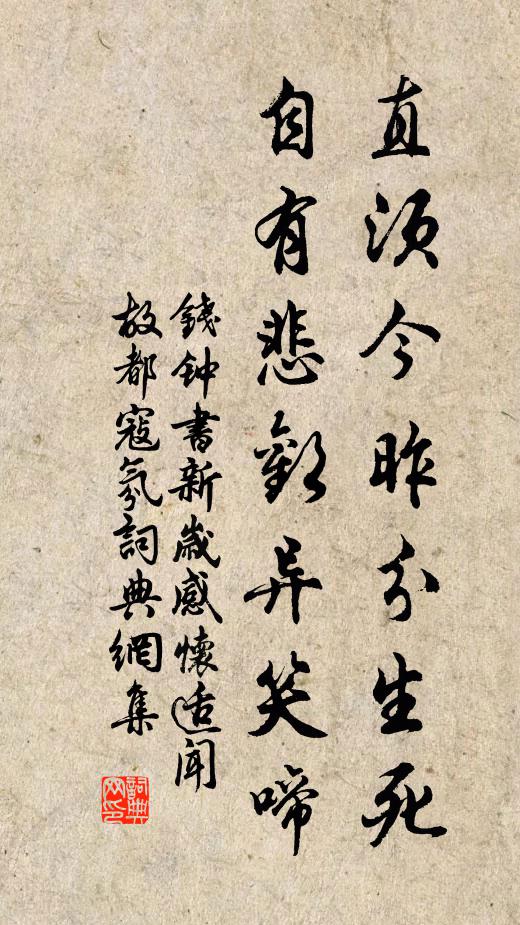 直须今昨分生死
自有悲歡异笑啼
錢钟書新歲感懷适聞
故都寇氛詞典網集
詞典
网印